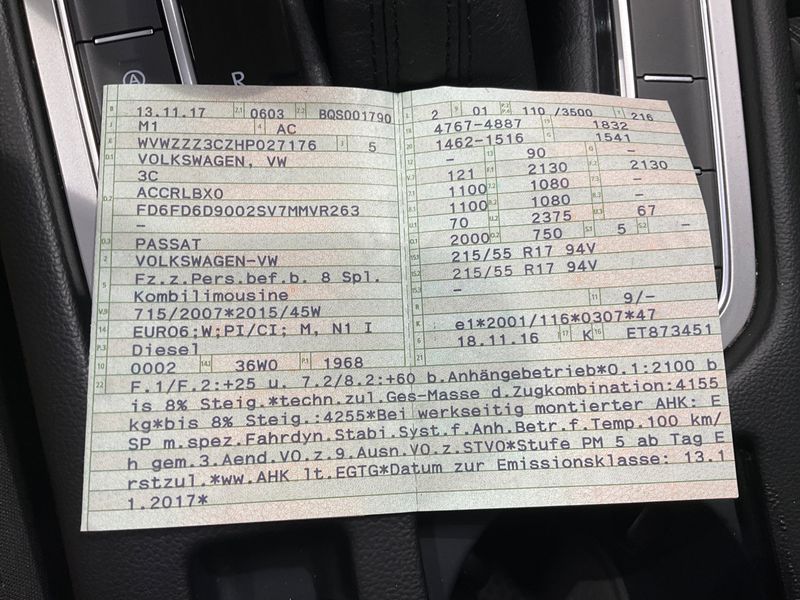 A R
B 13.11.17 2.1 0603 2.2 BQS001790
J M1 4 AC
E WVWZZZ3CZHP027176 3 5
D.1 VOLKSWAGEN, VW
3C
D.2 ACCRLBX0
FD6FD6D9002SV7MMVR263
–
D.3 PASSAT
2 VOLKSWAGEN-VW
5 Fz.z.Pers.bef.b. 8 Spl.
Kombilimousine
V.9 715/2007*2015/45W
14 EURO6;W;PI/CI; M, N1 I
P.3 Diesel
10 0002 14.1 36W0 P.1 1968
L 2 9 01 P.2 P.4 110 /3500 T 216
18 4767-4887 19 1832
20 1462-1516 G 1541
12 – 13 90 Q –
V.7 121 F.1 2130 F.2 2130
7.1 1100 7.2 1080 7.3 –
8.1 1100 8.2 1080 8.3 –
U.1 70 U.2 2375 U.3 67
O.1 2000 O.2 750 S.1 5 S.2 –
15.1 215/55 R17 94V
15.2 215/55 R17 94V
15.3 –
R 11 9/–
K e1*2001/116*0307*47
6 18.11.16 17 K 16 ET873451
21
22 F.1/F.2:+25 u. 7.2/8.2:+60 b.Anhängebetrieb*O.1:2100 b
is 8% Steig.*techn.zul.Ges-Masse d.Zugkombination:4155
kg*bis 8% Steig.:4255*Bei werkseitig montierter AHK: E
SP m.spez.Fahrdyn.Stabi.Syst.f.Anh.Betr.f.Temp.100 km/
h gem.3.Aend.VO.z.9.Ausn.VO.z.STVO*Stufe PM 5 ab Tag E
rstzul.*ww.AHK lt.EGTG*Datum zur Emissionsklasse: 13.1
1.2017*